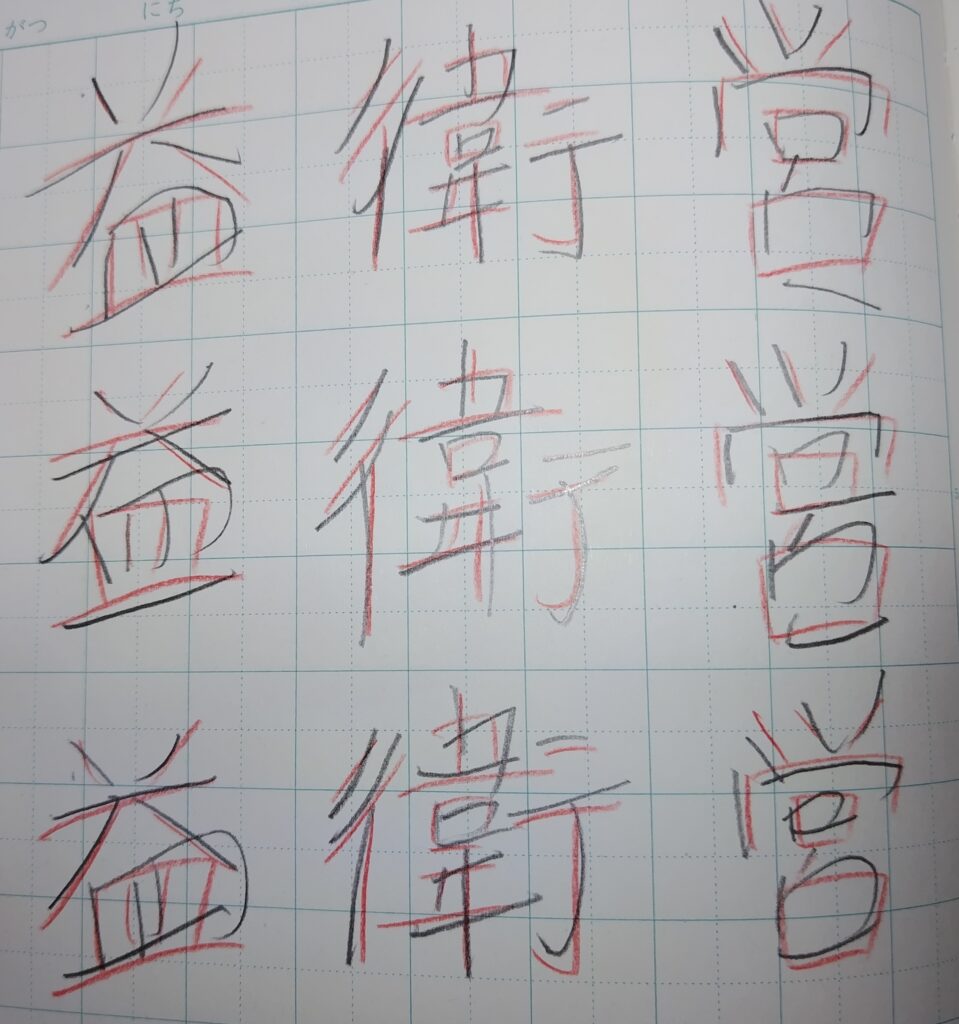 がつ にち
益 衛 営
益 衛 営
益 衛 営